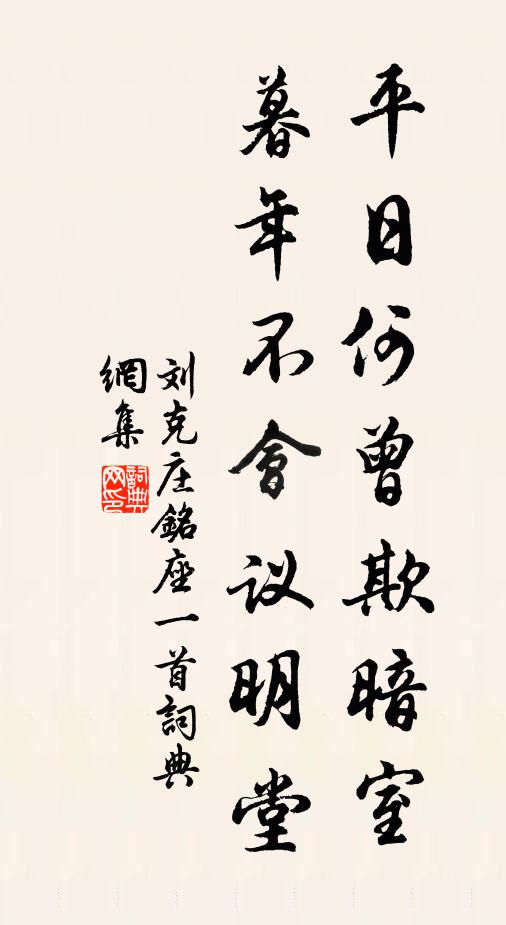 平日何曾欺暗室
暮年不會议明堂
刘克庄銘座一首詞典
網集
詞典
网印